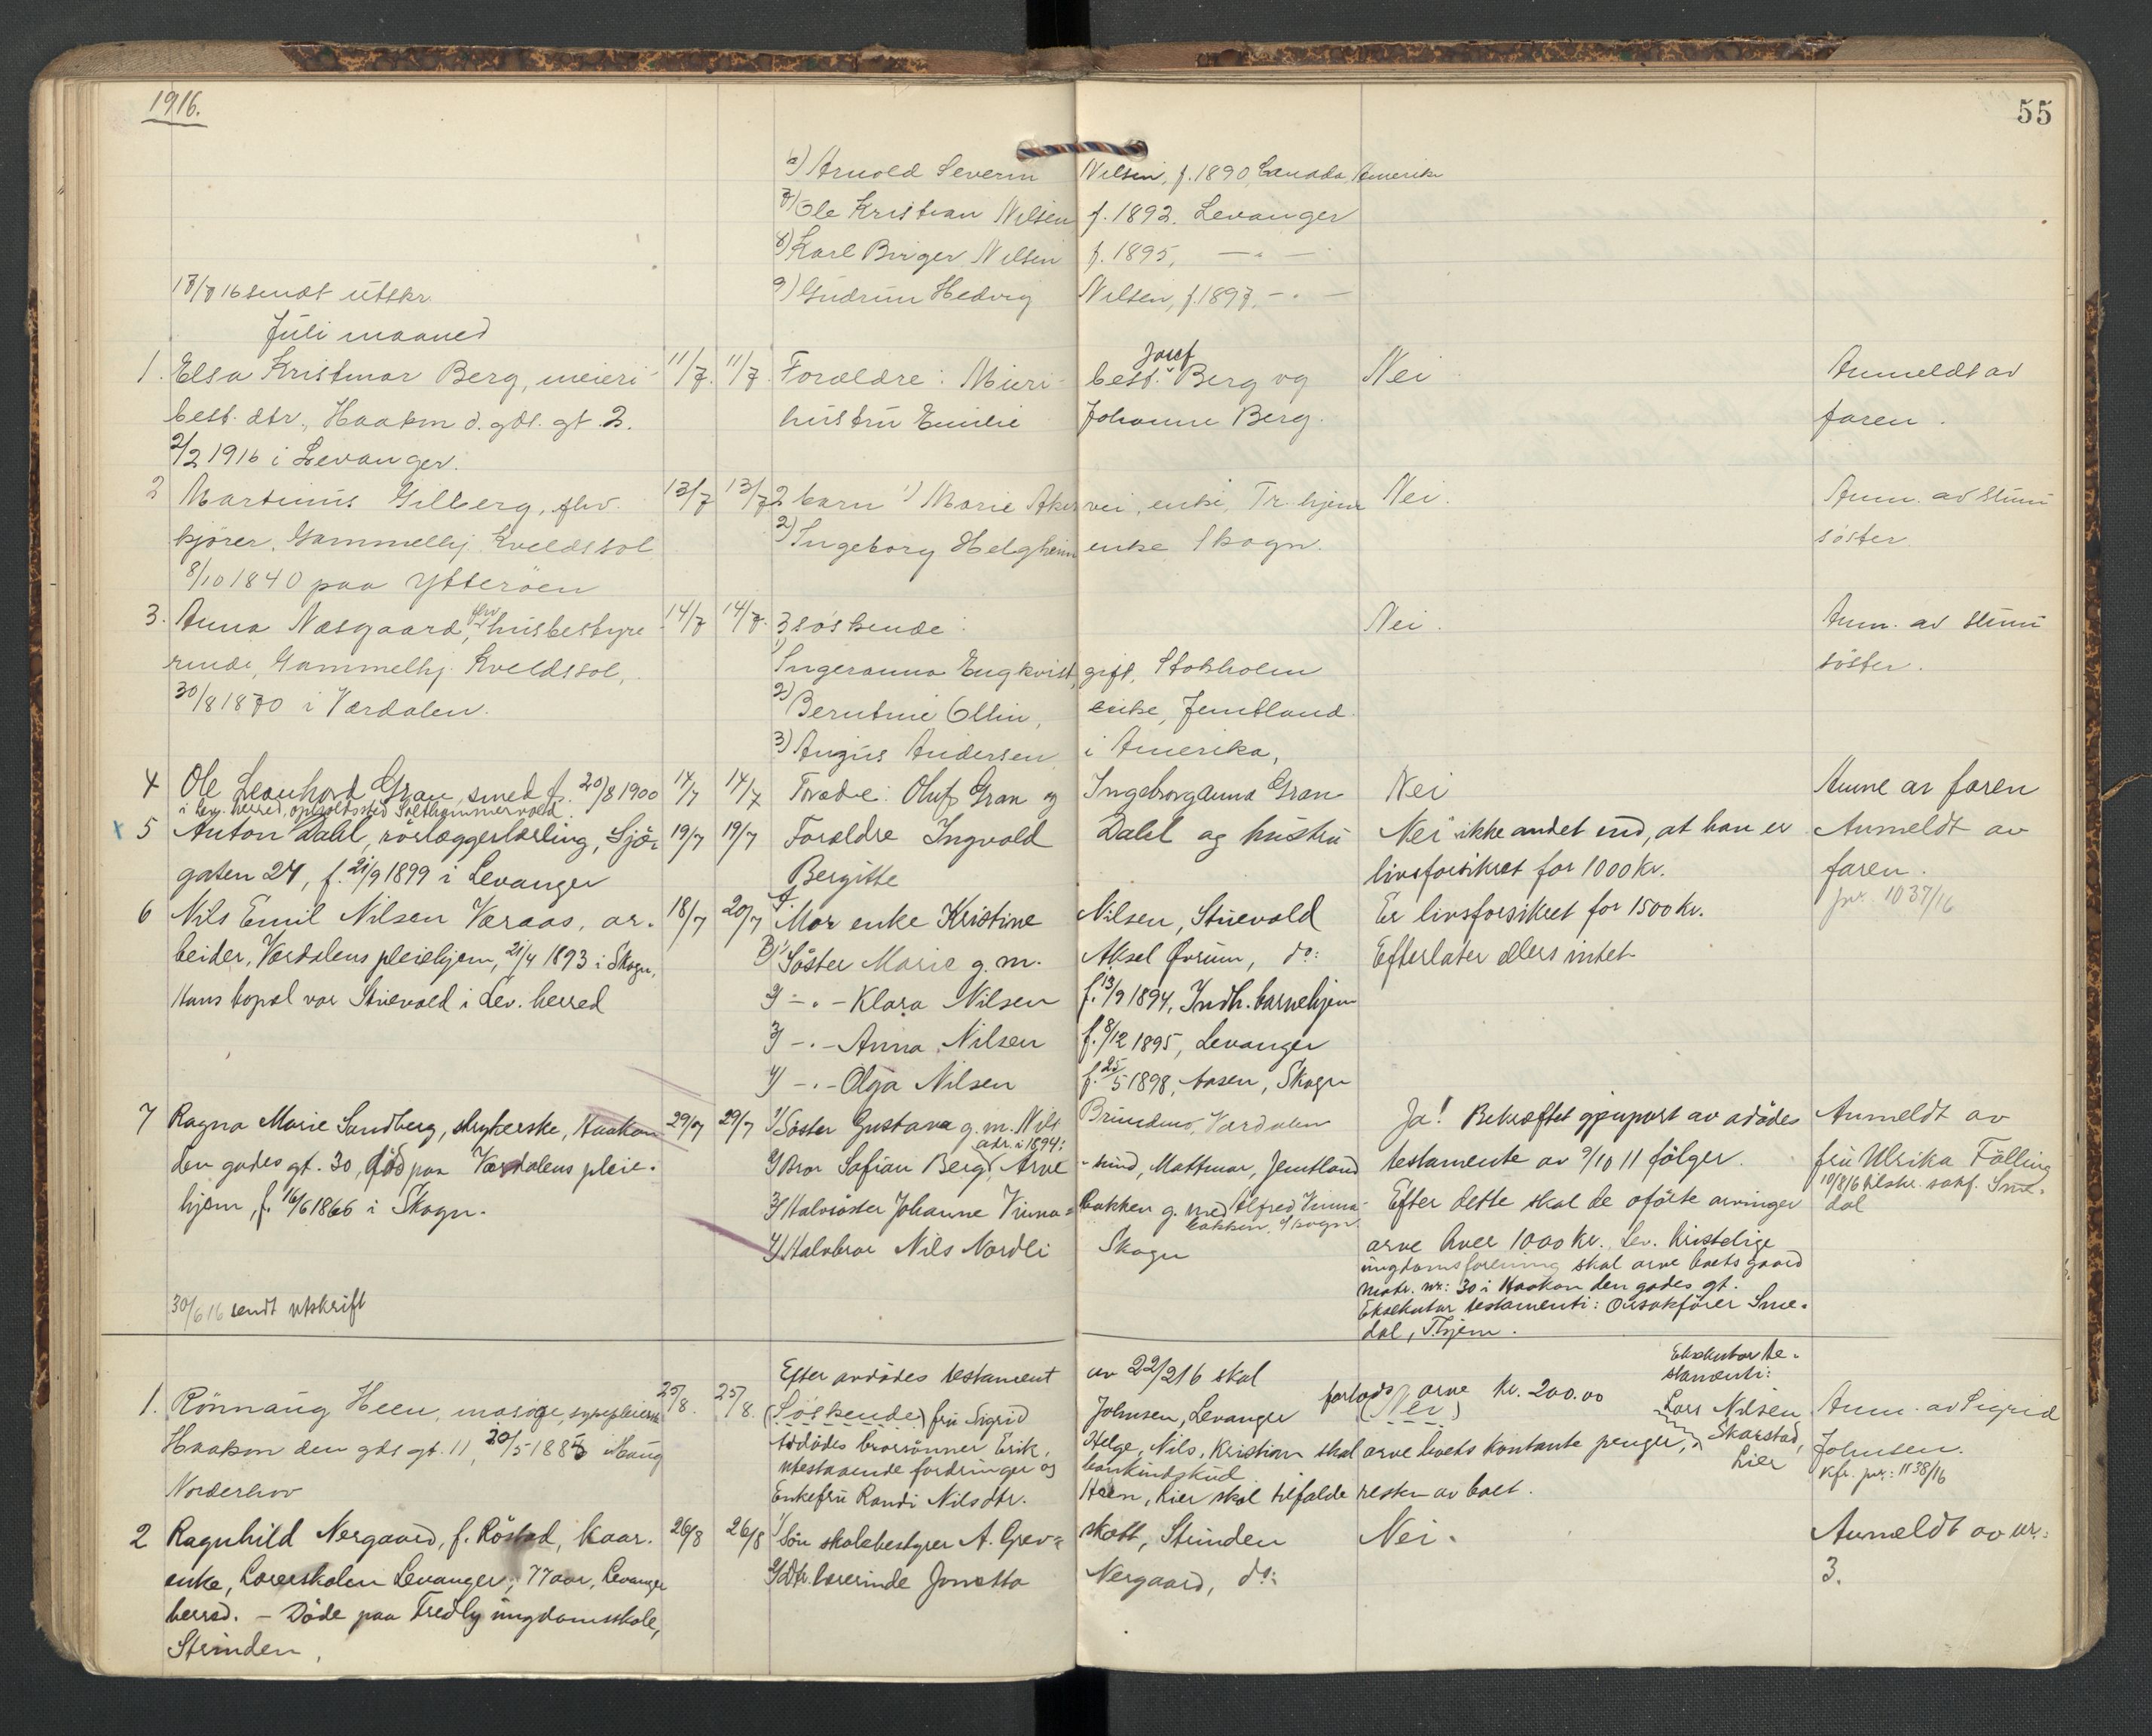 1916.
55
6) Arnold Severin Nilsen, f. 1890, Canada, Amerika
7) Ole Kristian Nilsen f. 1892. Levanger
8) Karl Birger Nilsen f. 1895, — " —
9) Gudrun Hedvig Nilsen, f. 1897, - " —
17/7 16 sendt utskr
Juli maaned
1. Elsa Kristmar Berg, meieri- 11/7. 11/7. Forældre: Mieri- best. Josef Berg og Nei. Anmeldt av
best. dtr., Haakon d. gdt. gt. 2. hustru Emilie Johanne Berg. faren.
2/2 1916 i Levanger.
2 Martinus Gilberg, fhv. 13/7 13/7 2 barn 1) Marie Akervei, enke, Tr.hjem Nei. Anm. av stuui
kjører, Gammelhj. Kveldssol 2) Ingeborg Helgheim enke Skogn. søster
8/10 1840 paa Ytterøen
3. Anna Næsgaard, fhv husbestyre- 14/7 14/7. 3 søskende: Nei. Anm. av stuui
rinde, Gammelhj. Kveldssol, 1) Ingeranna Engkvist, gift, Stokholm søster.
30/8 1870 i Værdalen. 2) Berntine Ollin, enke, Jemtland.
3) Angus Andersen i Amerika,
4 Ole Leonhard Gran, smed f. 20/8 1900 14/7 14/7 Foræ̈ldre: Oluf Gran og Ingeborganna Gran Nei Anme av faren
i Lev. herred, opholdssted Salthammervold.
x 5 Anton Dahl, rørlæggerlærling, Sjø- 19/7 19/7 Forældre Ingvald Dahl og hustru Nei ikke andet end, at han er Anmeldt av
gaten 24, f. 21/9 1899 i Levanger Bergitte livsforsikret for 1000 kr. faren.
6 Nils Emil Nilsen Væraas, ar- 18/7 20/7 Mor enke Kristine Nilsen, Stuevold Er livsforsikret for 1500 kr. jnr. 1037/16
beider, Værdalens pleiehjem, 21/4 1893 i Skogn, 1) Søster Marie g. m. Aksel Ørum, do: Efterlater ellers intet.
Hans bopæl var Stuevold i Lev. herred 2) - " - Klara Nilsen f. 13/9 1894, Indh. barnehjem
3) - " - Anna Nilsen f. 8/12 1895, Levanger
4) - " - Olga Nilsen f. 25/5 1898, Aasen, Skogn
7 Ragna Marie Sandberg, strykerske, Haakon 29/7 29/7 1) Søster Gustava g. m. Nils Brundmo, Værdalen Ja! Bekræftet gjenpart av avdødes Anmeldt av
den godes gt. 30, død paa Værdalens pleie- 2) Bror Safian Berg, adr. i 1894: Arve-sund, Mattmar, Jemtland testamente av 9/10 11 følger. fru Ulrika Fölling
hjem, f. 16/6 1866 i Skogn. 3) Halvsøster Johanne Vinna-bakken g. med Alfred Vinna- bakken, Skogn Efter dette skal de oførte arvinger 10/8 16 tilskr. sakf. Sme-dal
4) Halvbror Nils Nordli Skogn arve hver 1000 kr. Lev. Kristelige
ungdomsforening skal arve boets gaard
matr. nr: 30 i Haakon den godes gt.
Eksekutor testamenti: Ovrsakfører Sme-
dal, T.hjem.
30/6 16 sendt utskrift
1. Rønnaug Heen, massøse, sykepleierske 25/8. 25/8. Efter avdødes testament av 22/2 16 skal
(Søskende) fru Sigrid Johnsen, Levanger forlods arve kr. 200.00 (Nei) Eksekutor te-stamenti: Lars Nilsen Skarstad, Lier Anm. av Sigrid
Haakon den gds gt. 11, 20/5 1885 Haug Avdødes brorsønner Erik, Helge, Nils, Kristian skal arve boets kontante penger, Johnsen.
Norderhov utestaaende fordringer og bankindskud. Kfr. jnr: 1138/16
Enkefru Randi Nilsdtr. Heen, Lier skal tilfalde resten av boet.
2 Ragnhild Nergaard, f. Røstad, kaar- 26/8 26/8 1) Søn skolebestyrer A. Grev-skott, Strinden Nei. Anmeldt av nr.:
enke, Lærerskolen Levanger, 77 aar, Levanger 2) Dtr. lærerinde Jonetta Nergaard, do: 3.
herred. - Døde paa Fredly ungdomsskole,
Strinden.